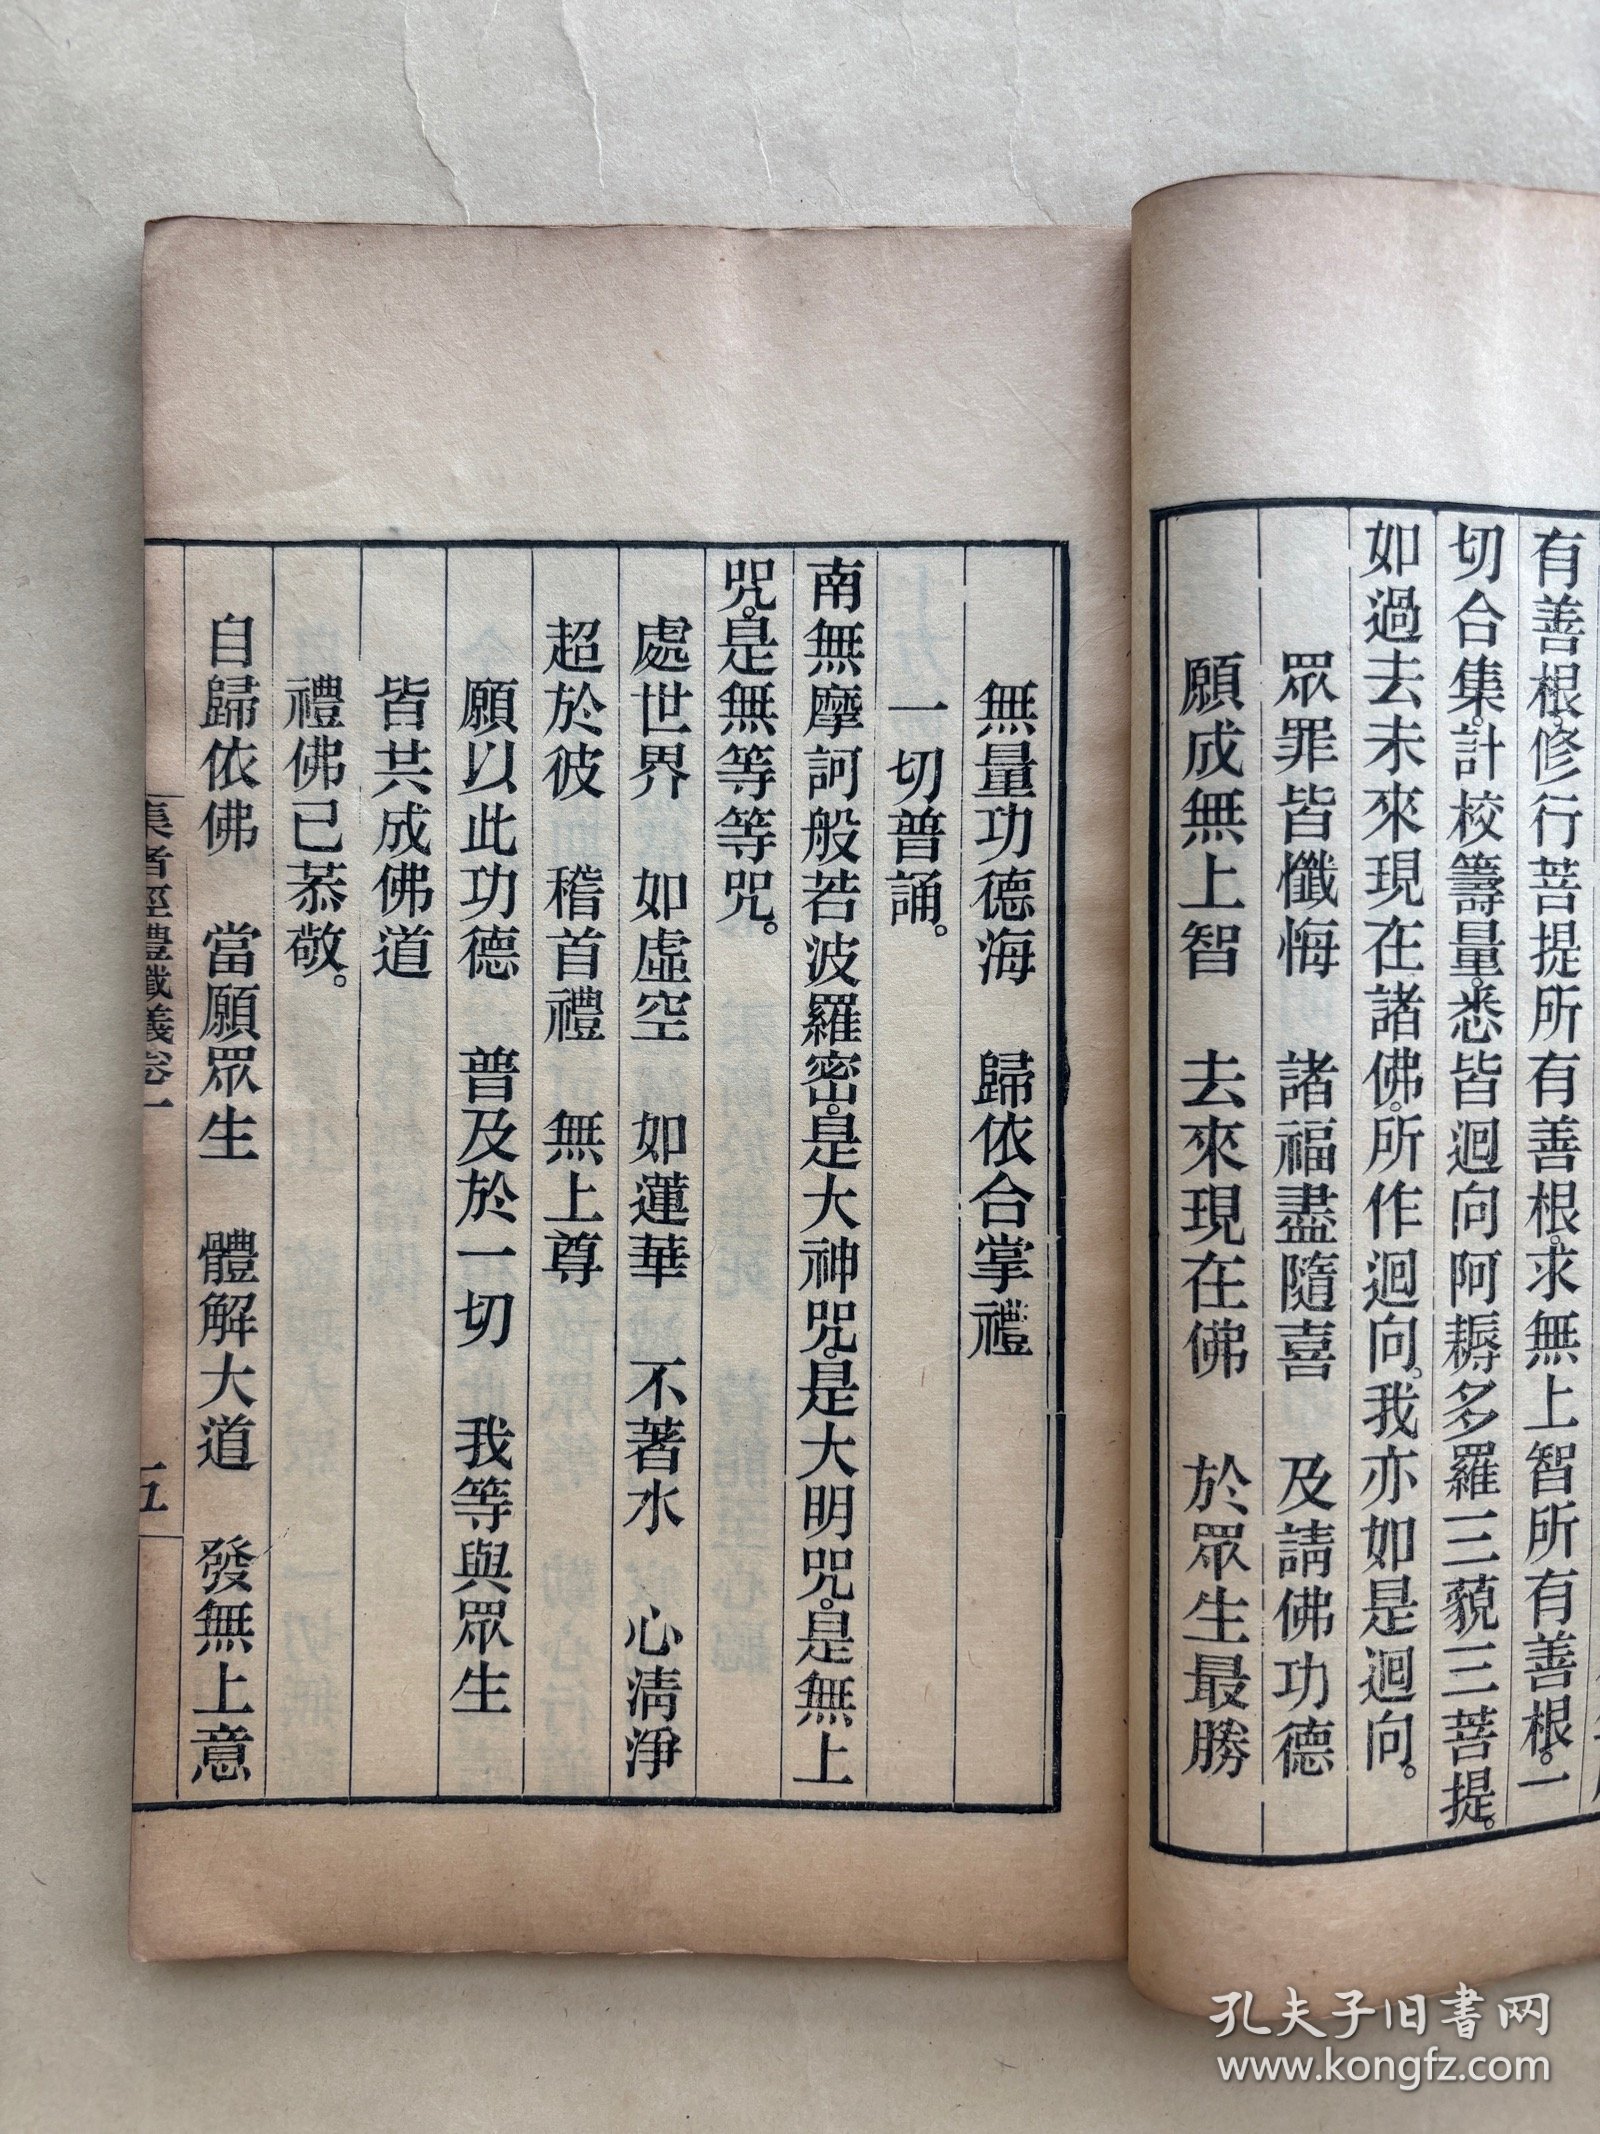 有善根。修行菩提所有善根。求無上智所有善根。一
切合集。計校籌量。悉皆迴向阿耨多羅三藐三菩提。
如過去未來現在諸佛。所作迴向。我亦如是迴向。
眾罪皆懺悔　諸福盡隨喜　及請佛功德
願成無上智　去來現在佛　於眾生最勝
無量功德海　歸依合掌禮
一切普誦。
南無摩訶般若波羅密。是大神咒。是大明咒。是無上
咒。是無等等咒。
處世界　如虛空　如蓮華　不著水　心清淨
超於彼　稽首禮　無上尊
願以此功德　普及於一切　我等與眾生
皆共成佛道
禮佛已恭敬。
自歸依佛　當願眾生　體解大道　發無上意
禮懺義卷一
五
孔夫子旧书网
www.kongfz.com